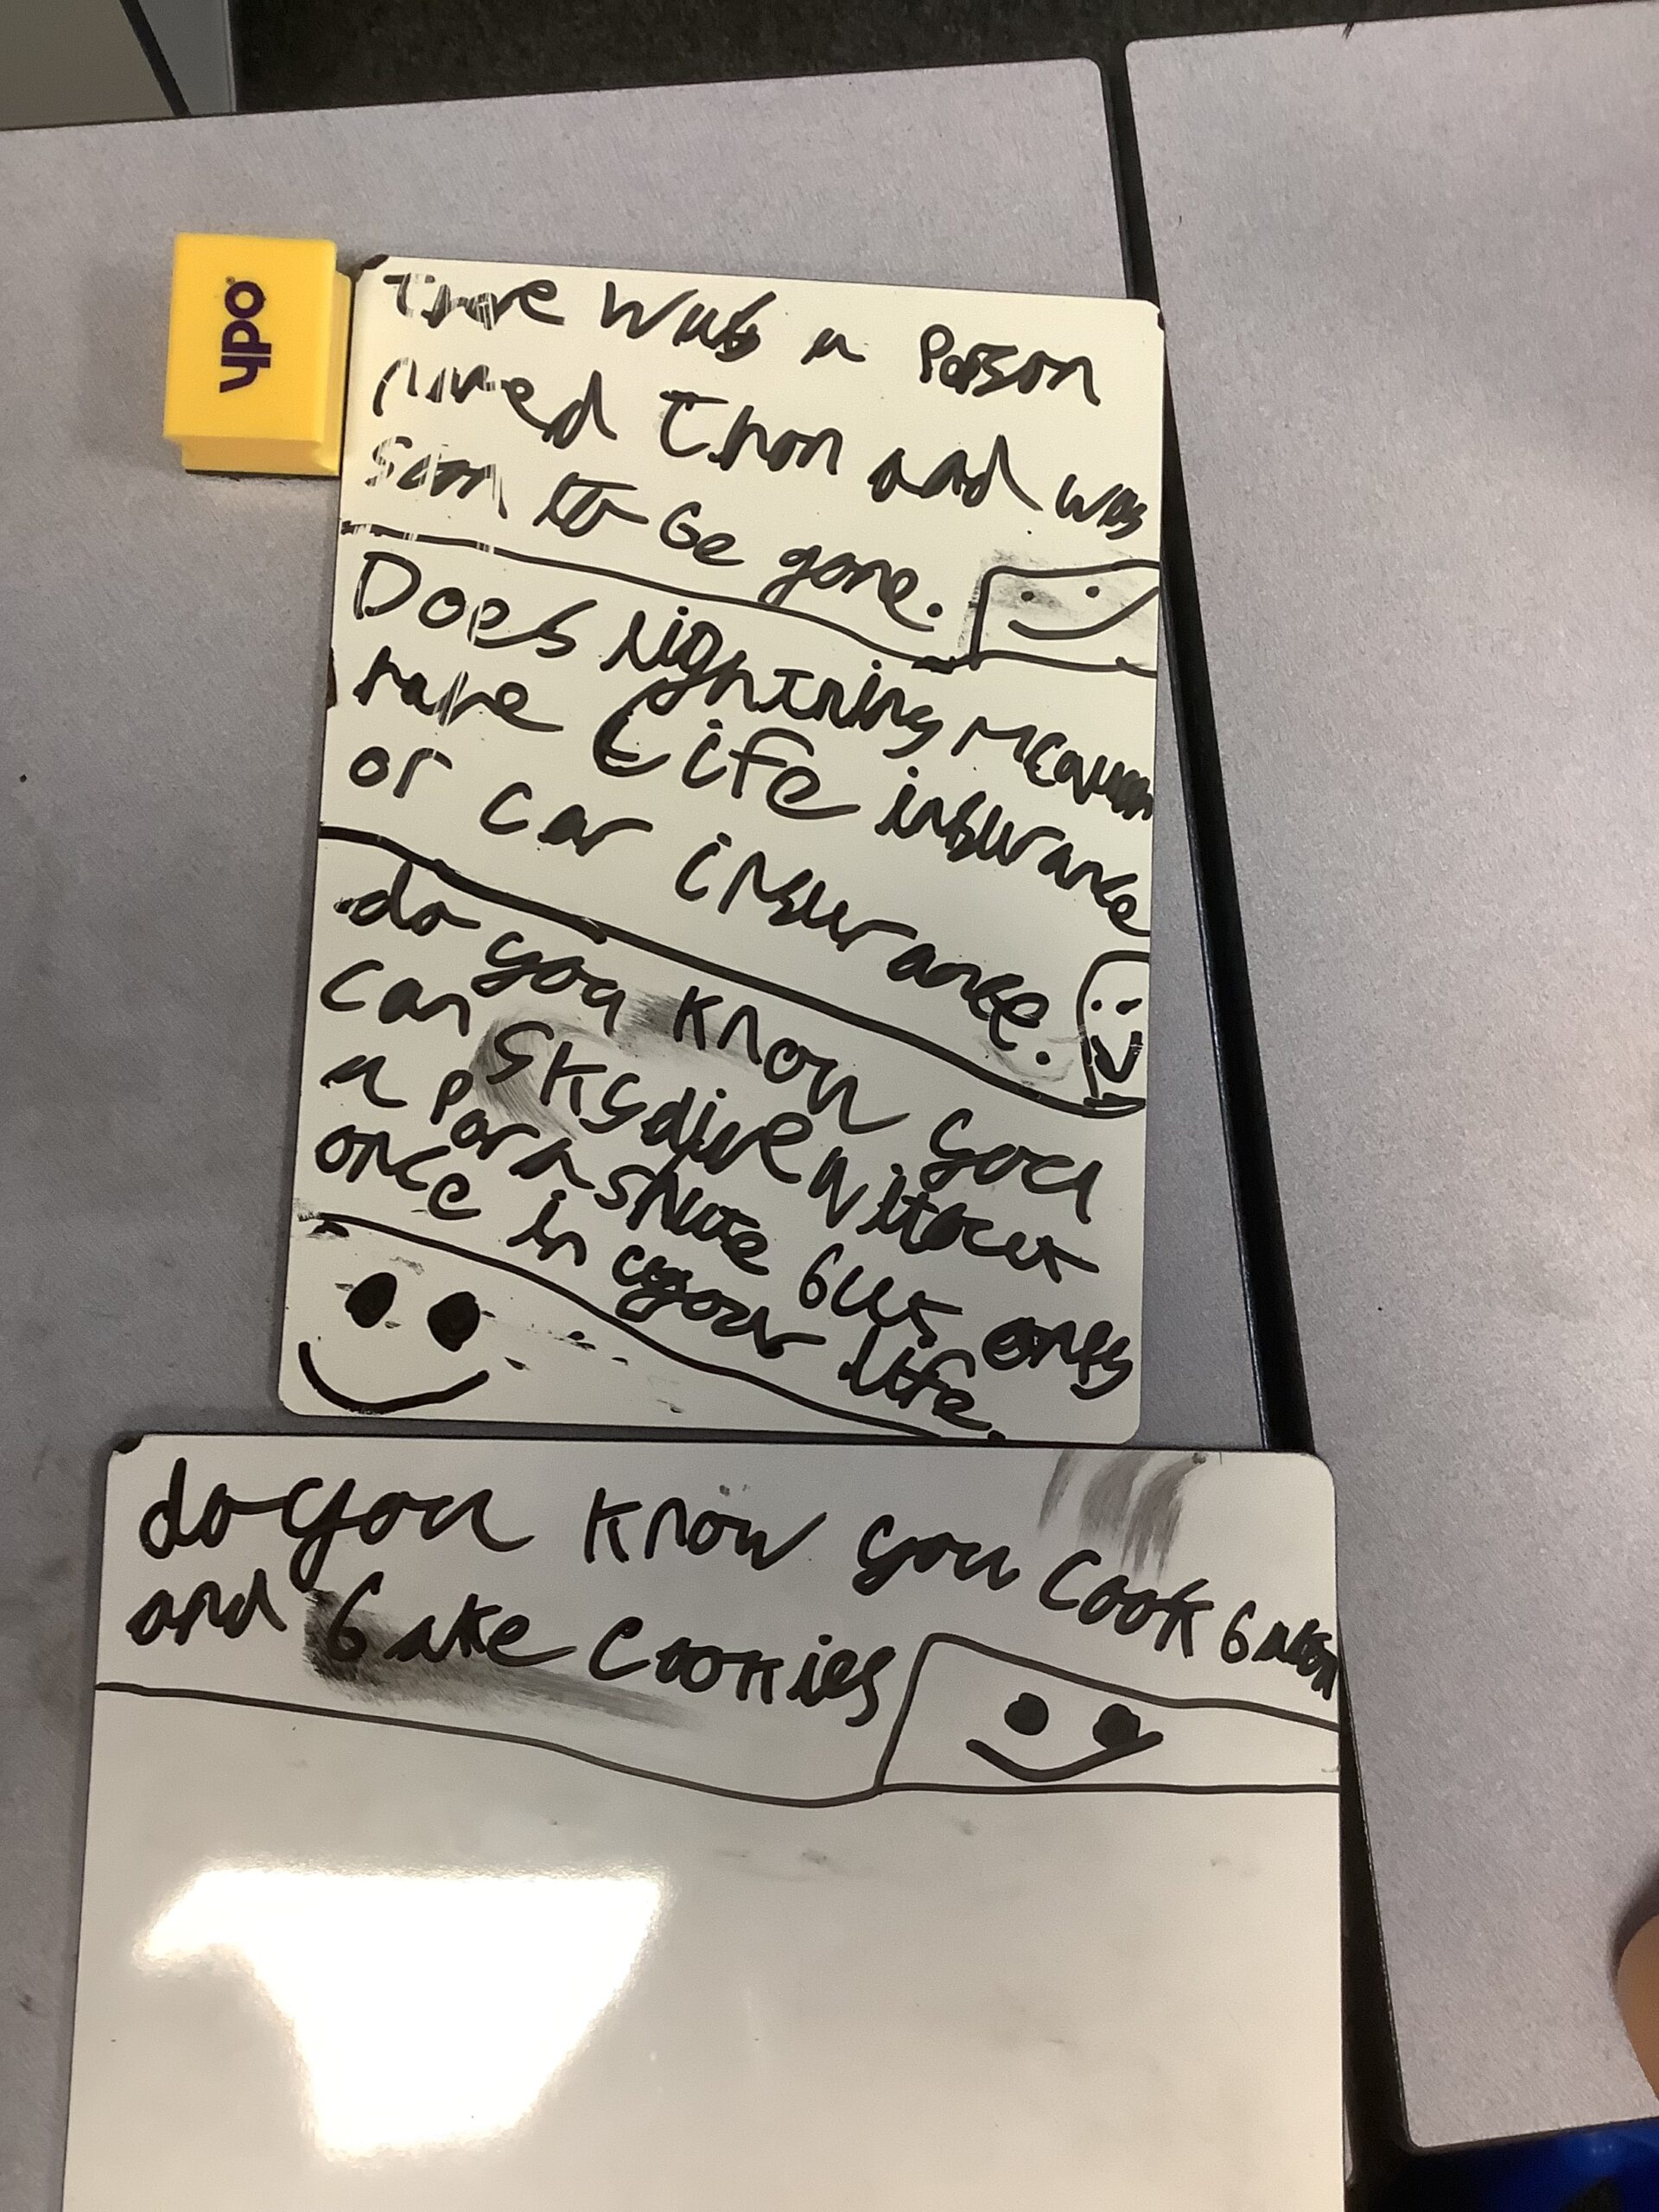 ypo
There was a Person
named Thon and was
soon to be gone.
Does lightning Mcqueen
have Life insurance
or car insurance.
do you know you
can skydive witout
a parashute but only
once in your life.
do you know you cook bacon
and bake cookies